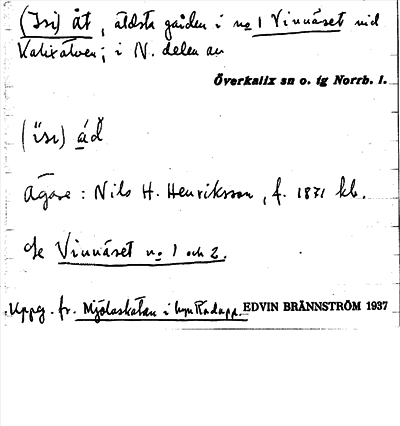 (Isi) åt, äldsta gården i no 1 Vinnäset vid
Kalixälven; i N. delen av
Överkalix sn o. tg Norrb. l.
(isi) ád
Ägare: Nils H. Henriksson, f. 1871 hb.
Se Vinnäset no 1 och 2.
Uppg. fr. Mjölaskatan i
EDVIN BRÄNNSTRÖM 1937